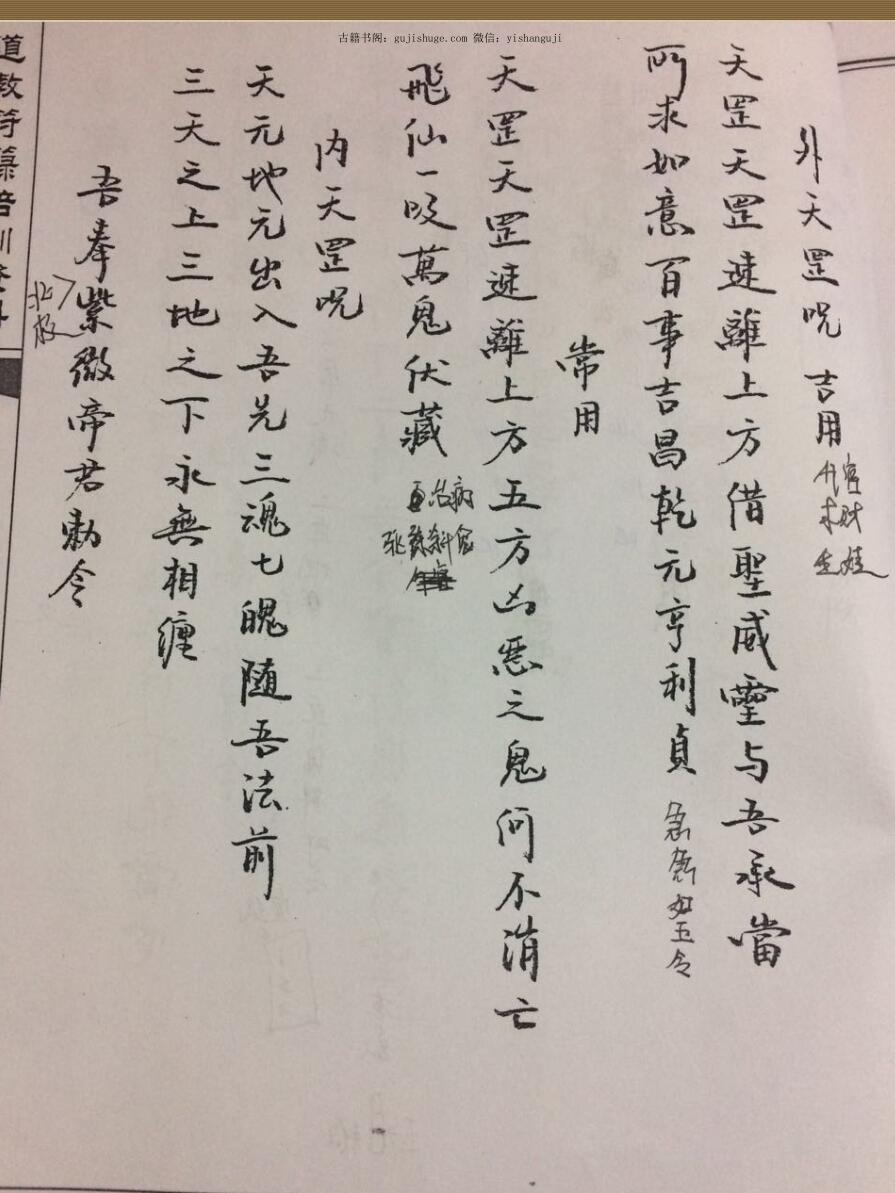 古籍书阁：gujishuge.com 微信：yishanguji
外天罡呪 吉用
求财
天罡天罡速離上方借聖威靈与吾承當
所求如意百事吉昌乾元亨利貞 急急如玉令
常用
天罡天罡速離上方五方凶惡之鬼何不消亡
飛仙一吸萬鬼伏藏
治病
内天罡呪
天元地元出入吾先三魂七魄随吾法前
三天之上三地之下永無相缠
吾奉紫微帝君勅令
北极
道教符籙培訓